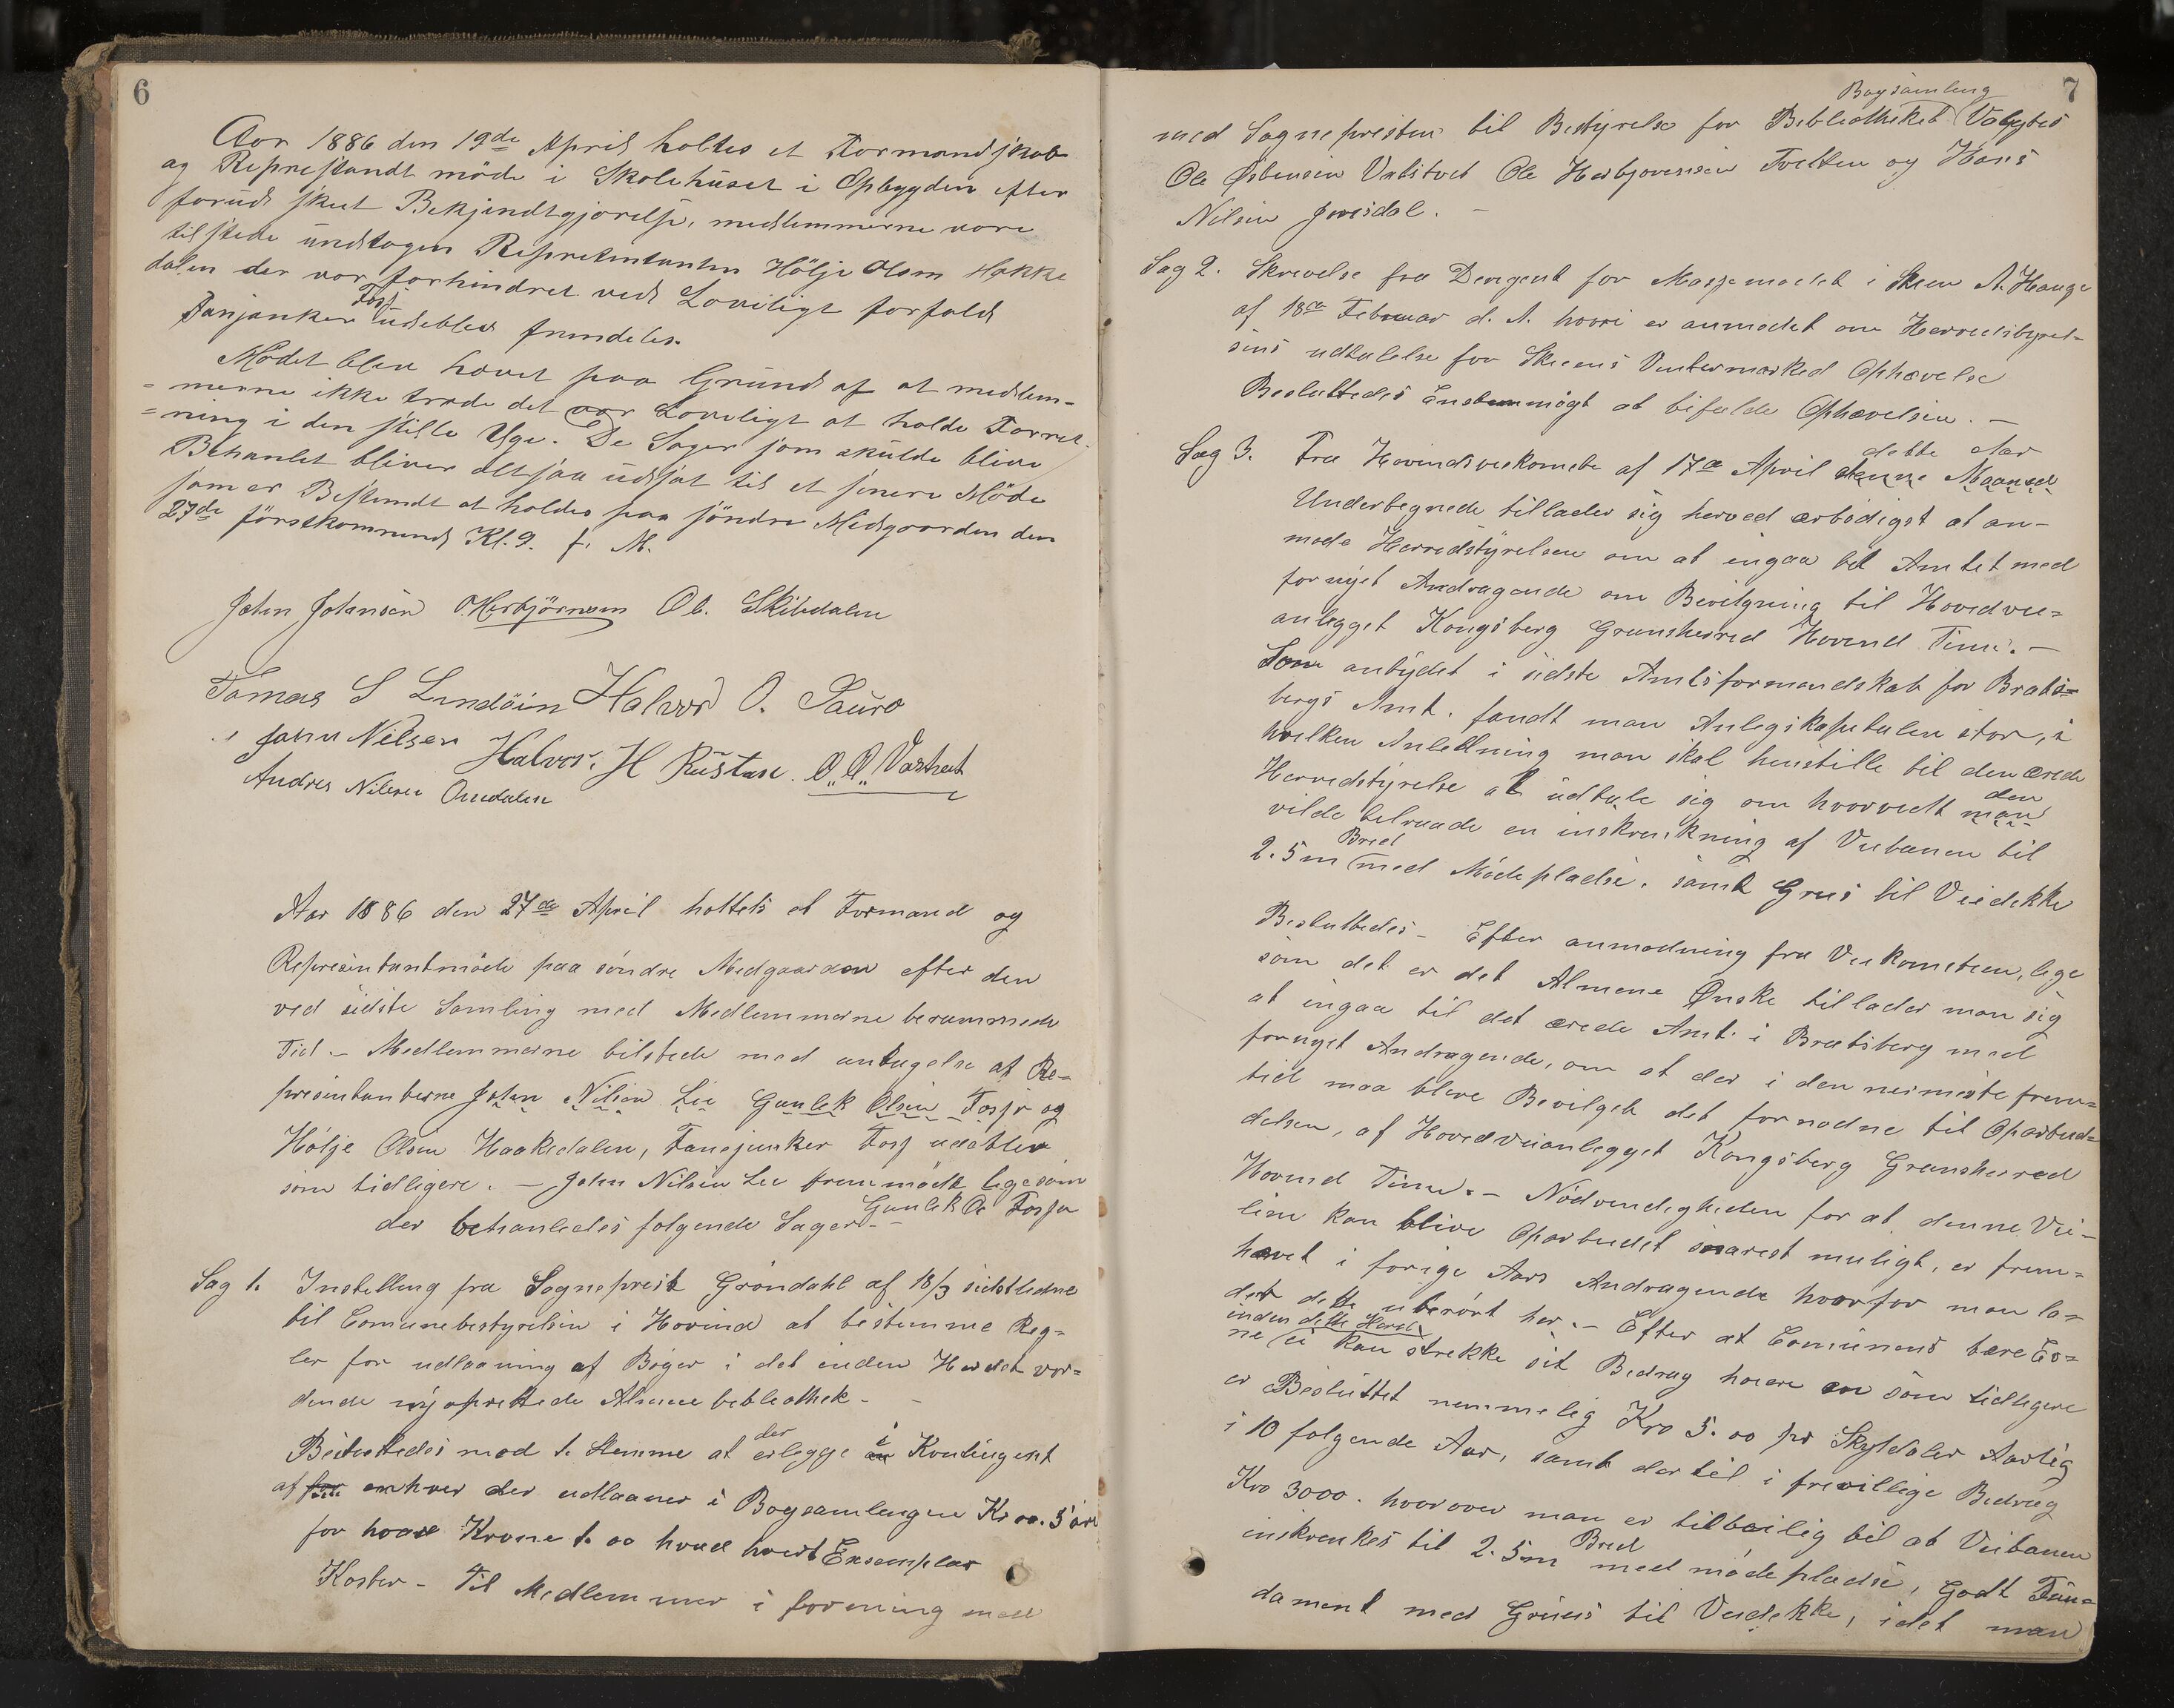 6
Aar 1886 den 19de April holtes et Formandskab
og Represtandt möde i Skolehuset i Opbygden efter
forud skeet Bekjendtgjorelse, medlemmerne vare
tilstede undtagen Represententen Hölje Olsen Hakke
dalen der var forhindret ved Lovligt forfald
Fanjunker Fosj udeblev fremdeles.
Mödet blev hævet paa Grund af at medlem-
=merne ikke trode det var Loveligt at holde Forret-
=ning i den stille Uge. De Sager som skulde blive
Behanlet bliver altsaa udsat til et senere Möde
som er Bestemdt at holdes paa söndre Midgaarden den
27de förstkommend Kl. 9. f. M.
John Johansen O. Herbjörnsen Ol. Skibdalen
Tomas S Lundöin Halvor O. Sauro
John Nilsen Halvor. H Rustan. O. O. Vastveit
Andres Nilsen Omdalen
Aar 1886 den 27de April holtets et Formand og
Representantmöde paa söndre Midgaarden efter den
ved sidste Samling med Medlemmerne berammede
Tid. – Medlemmerne tilstede med untagelse af Re-
presentanterne John Nilsen Lie Gunlek Olsen Fosse og
Hölje Olsen Haakedalen, Fanejunker Fosj udeblev
som tidligere. – John Nilsen Lie fremmödte ligesom
Gunlek Os Fossen
der behanledes folgende Sager. –
Sag 1. Instelling fra Sogneprest Gröndahl af 18/3 sidstledne
til Comunebestyrelsen i Hovind at bestemme Reg=
ler for udlaaning af Böger i det inden Herdet vor=
dende nyoprettede Almuebibliothek. –
Besluttedes mod 1. Stemme at der erlegge i Kontingent
af enhver der udlaaner i Bogsamlingen Kr 00. 5 öre
for hver Krone 1. 00 hvad hvert Exsemplar
Koster – Til Medlemmer i forening med
7
Bogsamling
med Sognepresten til Bestyrelse for Bibliotheket Valgtes
Ole Östensen Vadstvet Ole Herbjovensen Tvetten og Hans
Nilsen Jvresdal. –
Sag 2. Skrivelse fra Dirigent for Massemodet i Skien A. Hauge
af 18de Februar d. A. hvori er anmodet om Herredsbyrel-
sens udtalelse for Skiens Vintermarked Ophævelse
Besluttedes Enstemmigt at bifalde Ophævelsen. –
dette Aar
Sag 3. Fra Hovindsveikomite af 17de April denne Maaned
Undertegnede tillader sig herved ærbödigst at an-
mode Herredstyrelsen om at ingaa til Amtet med
fornyet Andragende om Bevilgning til Hovedvei=
anlegget Kongsberg Gransherred Hovind Tinn. –
Som antydet i sidste Amtsformandskab for Brats=
bergs Amt. fandt man Anlegskapitalen stor, i
hvilken Anledning man skal henstille til den ærede
Herredstyrelse at udtale sig om hvorvidt man
den
vilde tilraade en inskrenkning af Veibanen til
2.5m Bred med Mödepladse, samt Grus til Veidekke
Besluttedes – Efter anmodning fra Veikomiteen, lige
som det er det Almene Önske tillader man sig
at ingaa til det ærede Amt i Bratsberg med
fornyet Andragende, om at der i den nermeste frem=
tid maa blive Bevilget det fornodne til Oparbeid=
delsen, af Hovedveianlegget Kongsberg Gransherred
Hovind Tinn. – Nödvendigheden for at denne Vei-
linie kan blive Oparbeidet snarest muligt, er frem=
hævet i forige Aars Andragende hvorfor man la=
der dette uberört her. – Efter at Comunens bære Ev=
inden dette Herred
ne ei kan strekke sit Bedrag höiere en som tidligere
er Besluttet nemmelig Kro 5. 00 pr Skyldaler Aarlig
i 10 folgende Aar, samt dertil i frivillige Bedrag
Kro 3000. hvorover man er tilböilig til at Veibanen
inskrenkes til 2.5m Bred med mödepladse, Godt Fun=
dament med Gruus til Veidekke, idet man